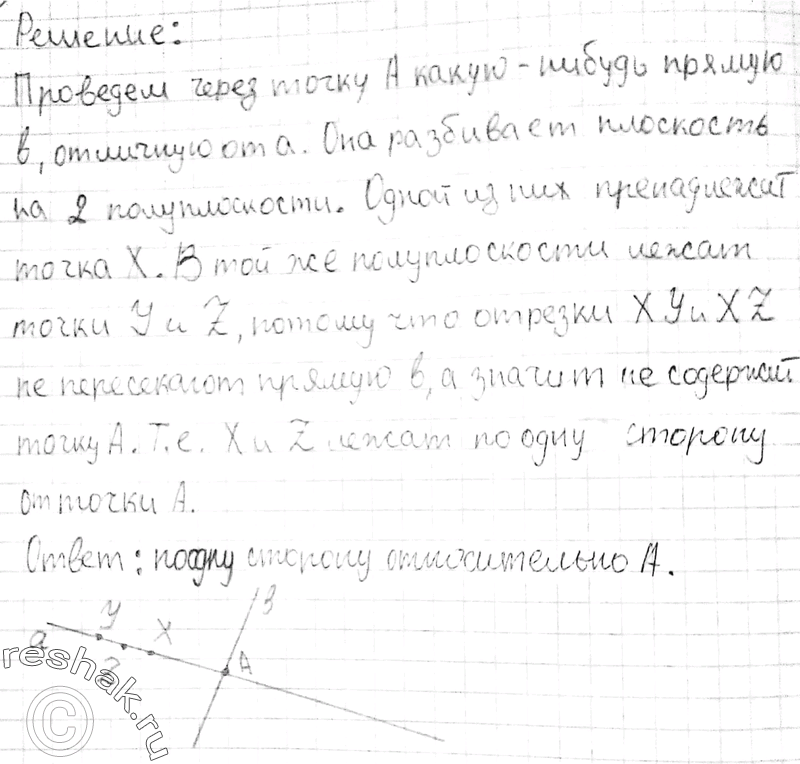 Решение:
Проведем через точку А какую-нибудь прямую
в, отличную от а. Она разбивает плоскость
на 2 полуплоскости. Одной из них пренадлежит
точка X. В той же полуплоскости лежат
точки Y и Z, потому что отрезки XY и XZ
не пересекают прямую в, а значит не содержат
точку А. Т.е. X и Z лежат по одну сторону
от точки А.
Ответ: по одну сторону относительно А.
a Y Z X A B
reshak.ru
©